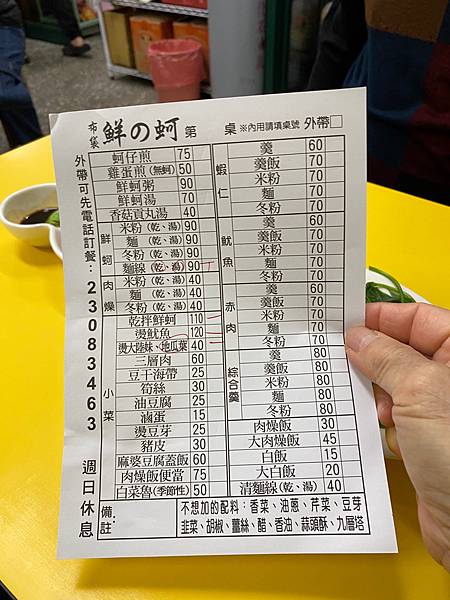 布袋 鮮の蚵 第 桌 ※內用請填桌號 外帶□
外帶可先電話訂餐：23083463 週日休息
蚵仔煎 75
雞蛋煎(無蚵) 50
鮮蚵粥 90
鮮蚵湯 70
香菇貢丸湯 40
鮮蚵
米粉(乾、湯) 90
麵(乾、湯) 90
冬粉(乾、湯) 90
麵線(乾、湯) 90
肉燥
米粉(乾、湯) 40
麵(乾、湯) 40
冬粉(乾、湯) 40
小菜
乾拌鮮蚵 110
燙魷魚 120
燙大陸妹、地瓜葉 40
三層肉 60
豆干海帶 25
筍絲 30
油豆腐 25
滷蛋 15
燙豆芽 25
豬皮 30
麻婆豆腐蓋飯 60
肉燥飯便當 75
白菜魯(季節性) 50
蝦仁
羹 60
羹飯 70
米粉 70
麵 70
冬粉 70
魷魚
羹 60
羹飯 70
米粉 70
麵 70
冬粉 70
赤肉
羹 60
羹飯 70
米粉 70
麵 70
冬粉 70
綜合羹
羹 80
羹飯 80
米粉 80
麵 80
冬粉 80
肉燥飯 30
大肉燥飯 45
白飯 15
大白飯 20
清麵線(乾、湯) 40
備註：
不想加的配料：香菜、油蔥、芹菜、豆芽
韭菜、胡椒、薑絲、醋、香油、蒜頭酥、九層塔